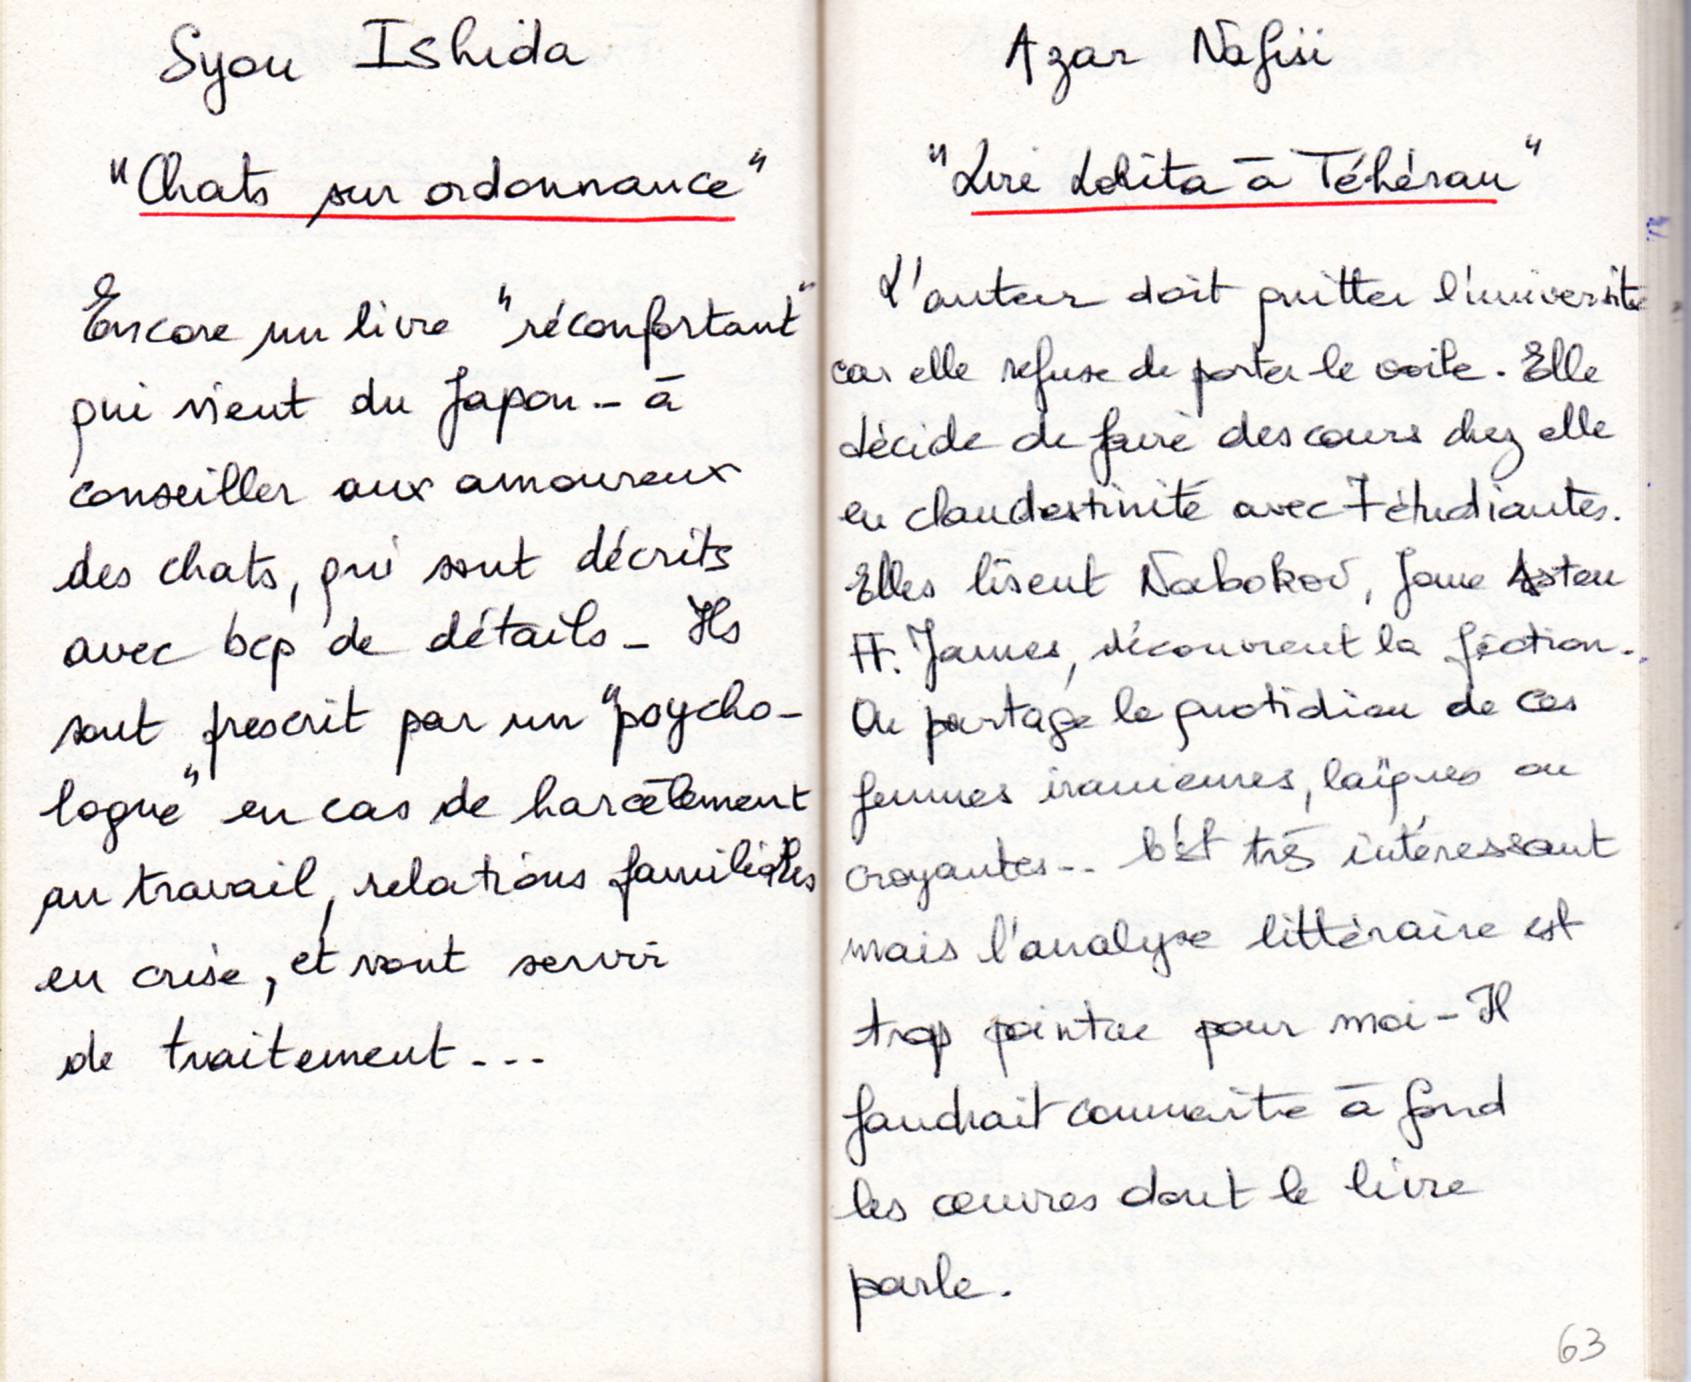 Syou Ishida
"Chats sur ordonnance"
Encore un livre "réconfortant"
qui vient du Japon - à
conseiller aux amoureux
des chats, qui sont décrits
avec bcp de détails - Ils
sont prescrit par un "psycho-
logue" en cas de harcèlement
au travail, relations familiales
en crise, et vont servir
de traitement...
Azar Nafisi
"Lire Lolita à Téhéran"
L'auteur doit quitter l'université
car elle refuse de porter le voile. Elle
décide de faire des cours chez elle
en clandestinité avec 7 étudiantes.
Elles lisent Nabokov, Jane Asten
H. James, découvrent la fiction.
On partage le quotidien de ces
femmes iraniennes, laïques ou
croyantes.. C'est très intéressant
mais l'analyse littéraire est
trop pointue pour moi - Il
faudrait connaître à fond
les œuvres dont le livre
parle.
63